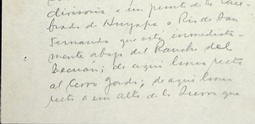 divisoria, a un punto de la que-
brada de Huyapa o Rio de San
Fernando que está inmediata-
mente abajo del Rancho del
Tecuán; de aquí línea recta
al Cerro Gordo; de aquí línea
recta a un alto de la Sierra que